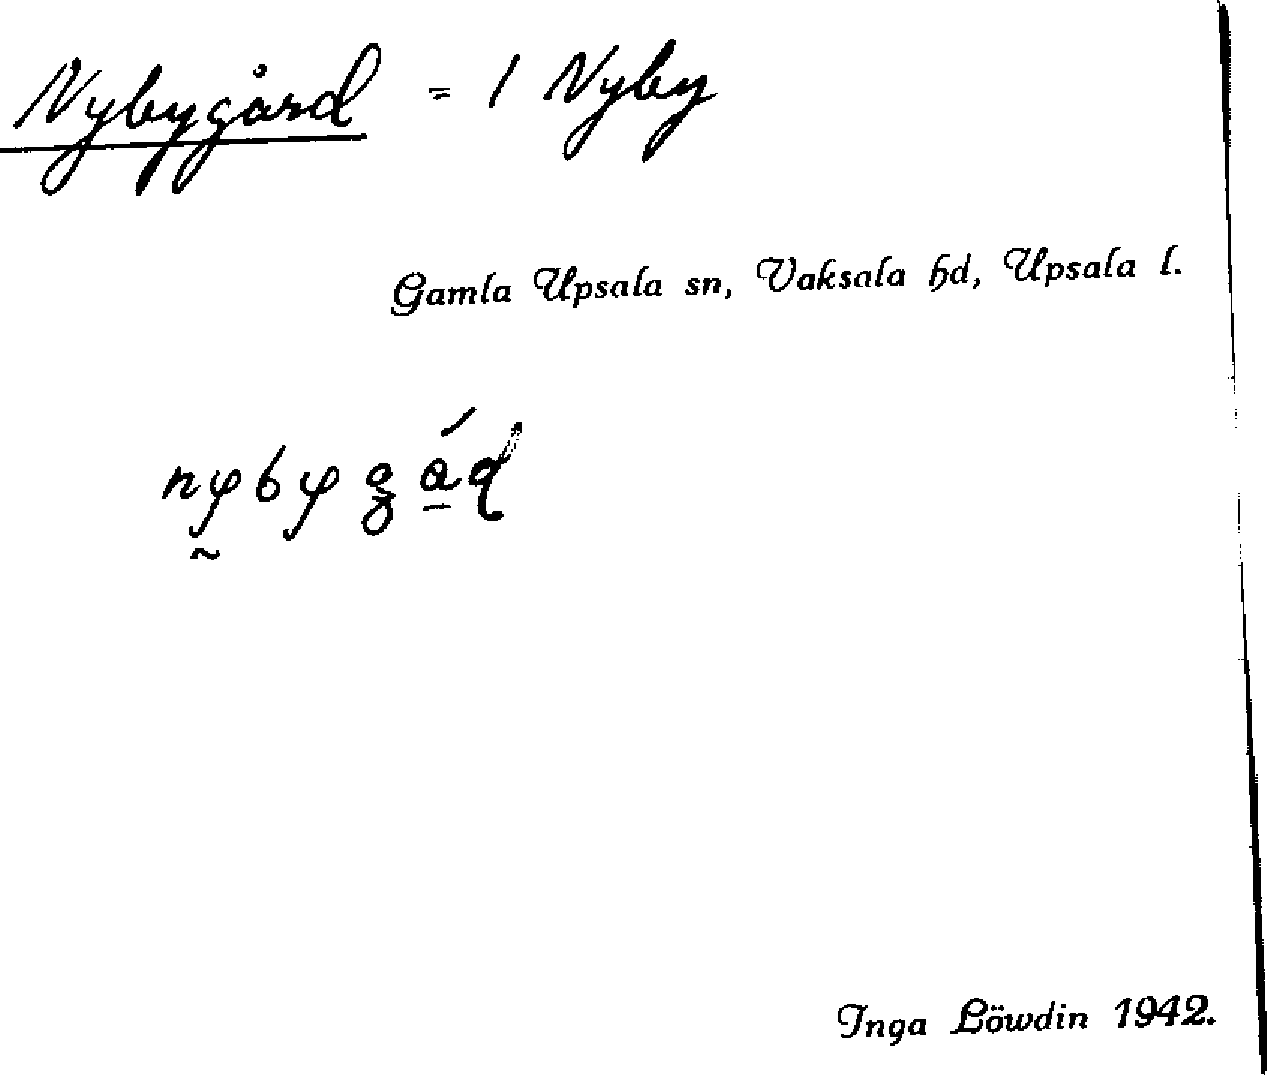 Nybygård = 1 Nyby
Gamla Upsala sn, Vaksala hd, Upsala l.
nybygád
Inga Löwdin 1942.